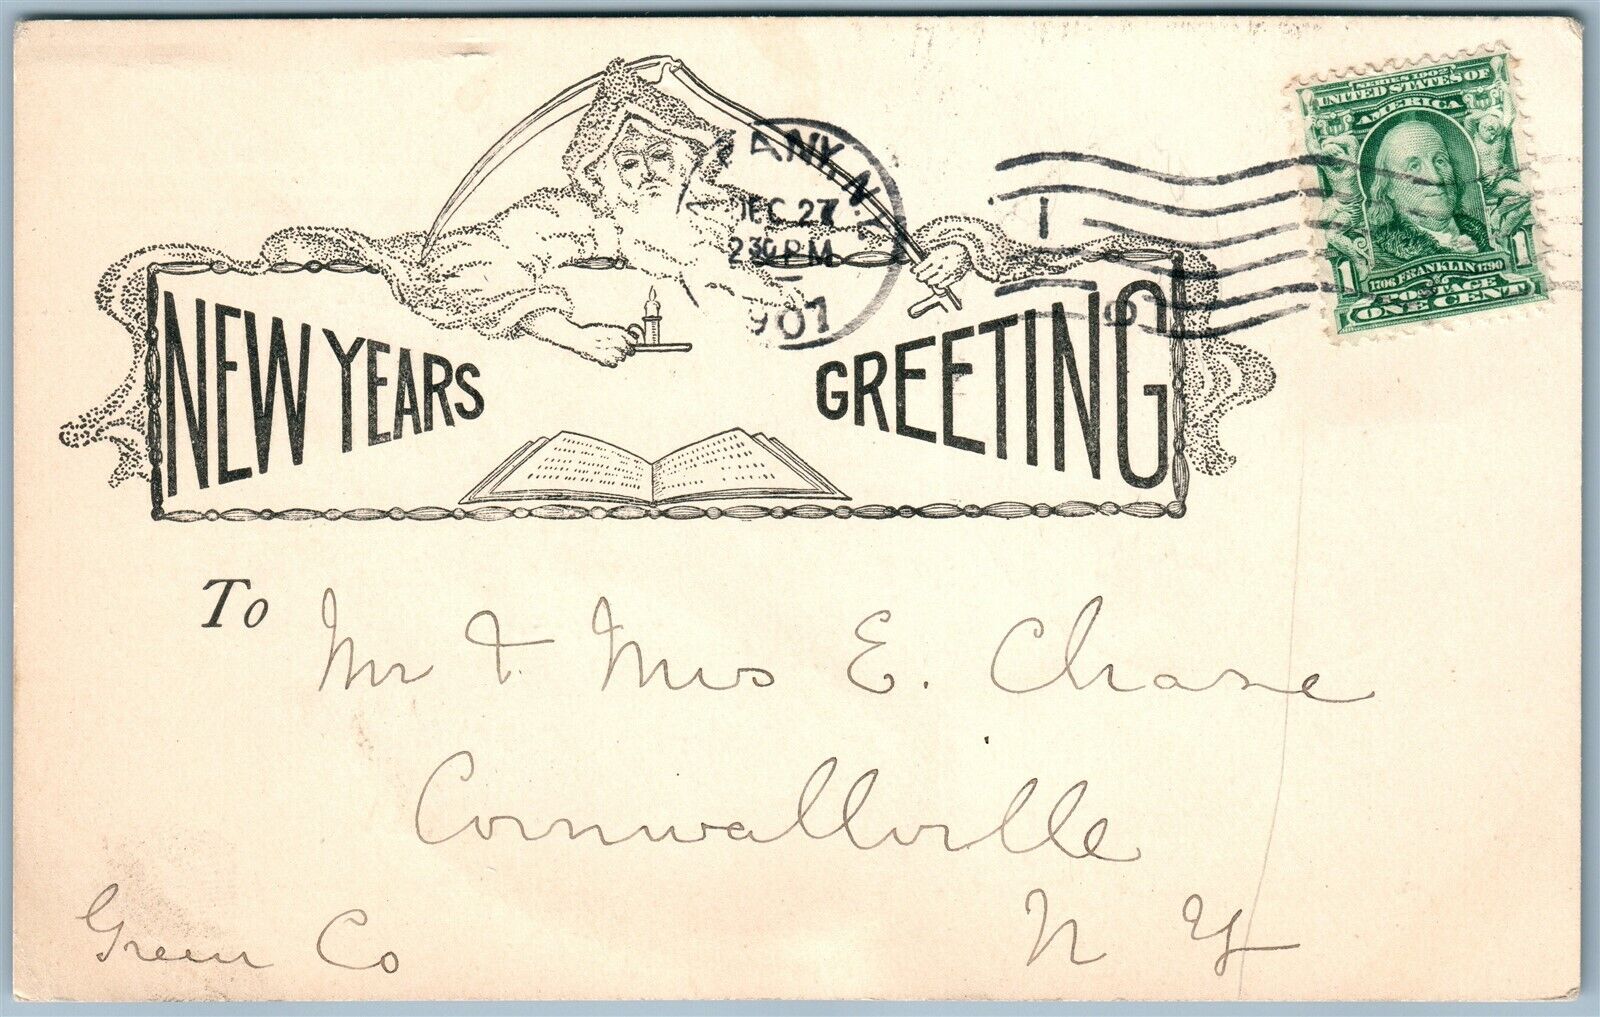 SERIES 1902
UNITED STATES OF
AMERICA
1706 FRANKLIN 1790
1 POSTAGE 1
ONE CENT
ANY, N.Y.
DEC 27
230 PM
1907
1
NEW YEARS GREETING
To Mr & Mrs E. Chase
Cornwallville
Green Co N Y